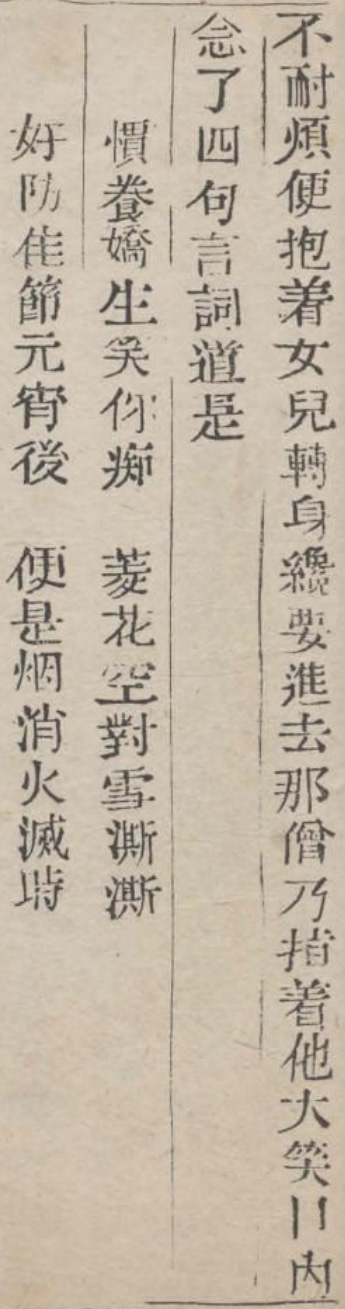 不耐煩便抱着女兒轉身纔要進去那僧乃指着他大笑口內
念了四句言詞道是
慣養嬌生笑你痴　菱花空對雪澌澌
好防佳節元宵後　便是烟消火滅時